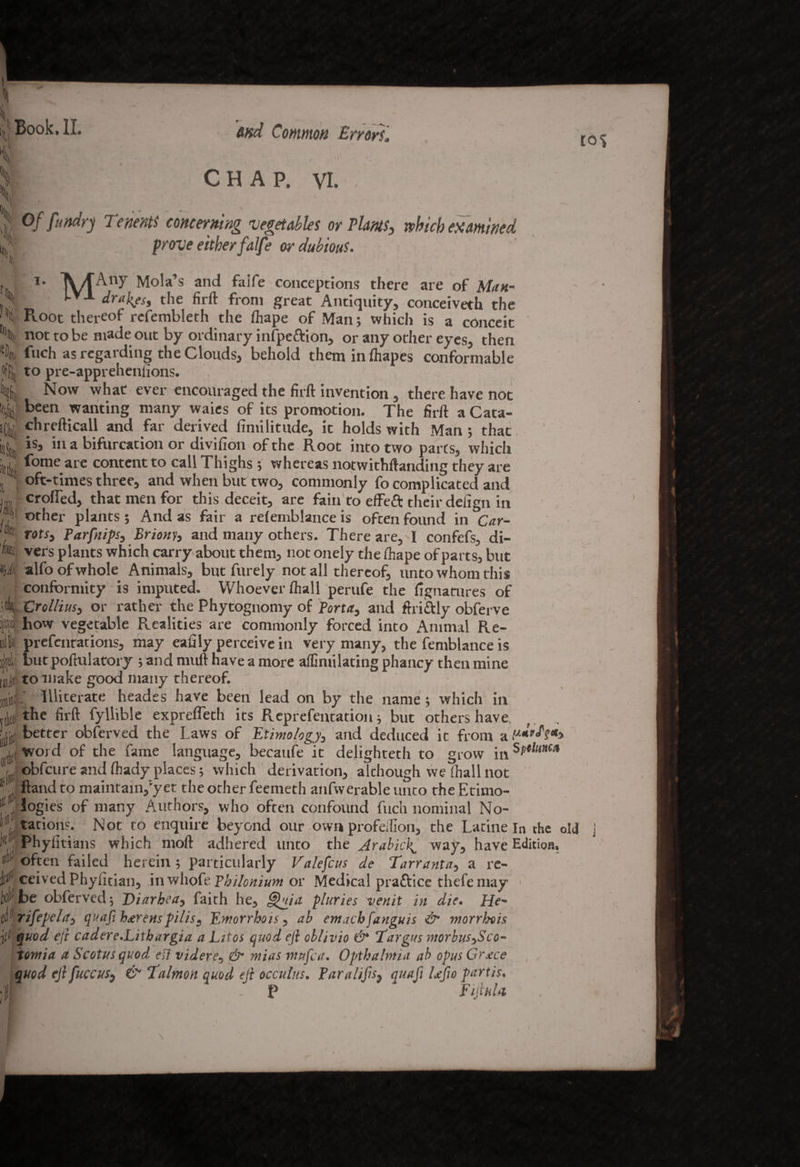 Book. II. and Common Errors. 105
CHAP. VI.
Of ſundry Tenents concerning vegetables or Plants, which examined
prove either falſe or dubious.
1. MAny Mola's and falſe conceptions there are of Man-
drakes, the firſt from great Antiquity, conceiveth the
Root thereof reſembleth the ſhape of Man; which is a conceit
not to be made out by ordinary inſpection, or any other eyes, then
ſuch as regarding the Clouds, behold them in ſhapes conformable
to pre-apprehenſions.
Now what ever encouraged the firſt invention, there have not
been wanting many waies of its promotion. The firſt a Cata-
chreſticall and far derived ſimilitude, it holds with Man; that
is, in a bifurcation or diviſion of the Root into two parts, which
ſome are content to call Thighs; whereas notwithſtanding they are
oft-times three, and when but two, commonly ſo complicated and
croſſed, that men for this deceit, are fain to effect their deſign in
other plants; And as fair a reſemblance is often found in Car-
rots, Parſnips, Briony, and many others. There are, I confeſs, di-
vers plants which carry about them, not onely the ſhape of parts, but
alſo of whole Animals, but ſurely not all thereof, unto whom this
conformity is imputed. Whoever ſhall peruſe the ſignatures of
Crollius, or rather the Phytognomy of Porta, and ſtrictly obſerve
how vegetable Realities are commonly forced into Animal Re-
preſentations, may eaſily perceive in very many, the ſemblance is
but poſtulatory ; and muſt have a more aſſimilating phancy then mine
to make good many thereof.
Illiterate heades have been lead on by the name; which in
the firſt ſyllible expreſſeth its Repreſentation; but others have
better obſerved the Laws of Etimology, and deduced it from a μάνδρα,
word of the ſame language, becauſe it delighteth to grow in Spelunca
obſcure and ſhady places; which derivation, although we ſhall not
ſtand to maintain, yet the other ſeemeth anſwerable unto the Etimo-
logies of many Authors, who often confound ſuch nominal No-
tations. Not to enquire beyond our own profeſſion, the Latine In the old
Phyſitians which moſt adhered unto the Arabick way, have Edition.
often failed herein; particularly Valeſcus de Tarranta, a re-
ceived Phyſitian, in whoſe Philonium or Medical practice theſe may
be obſerved; Diarhea, ſaith he, Quia pluries venit in die. He-
riſepela, quaſi hærens pilis, Emorrhois, ab emach ſanguis & morrhois
quod eſt cadere. Lithargia a Litos quod eſt oblivio & Targus morbus, Sco-
tomia a Scotus quod eſt videre, & mias muſca. Opthalmia ab opus Græce
quod eſt ſuccus, & Talmon quod eſt occulus. Paraliſis, quaſi læſio partis.
P Fiſtula